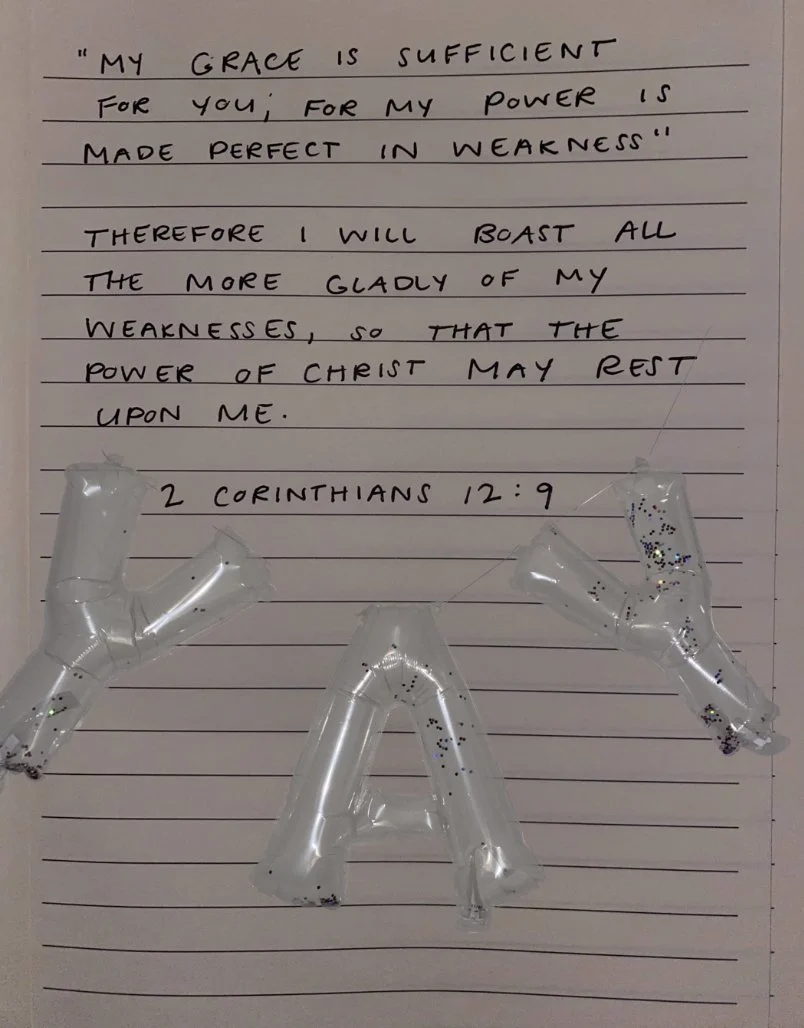 "MY GRACE IS SUFFICIENT
FOR YOU; FOR MY POWER IS
MADE PERFECT IN WEAKNESS"
THEREFORE I WILL BOAST ALL
THE MORE GLADLY OF MY
WEAKNESSES, SO THAT THE
POWER OF CHRIST MAY REST
UPON ME.
2 CORINTHIANS 12:9
YAY